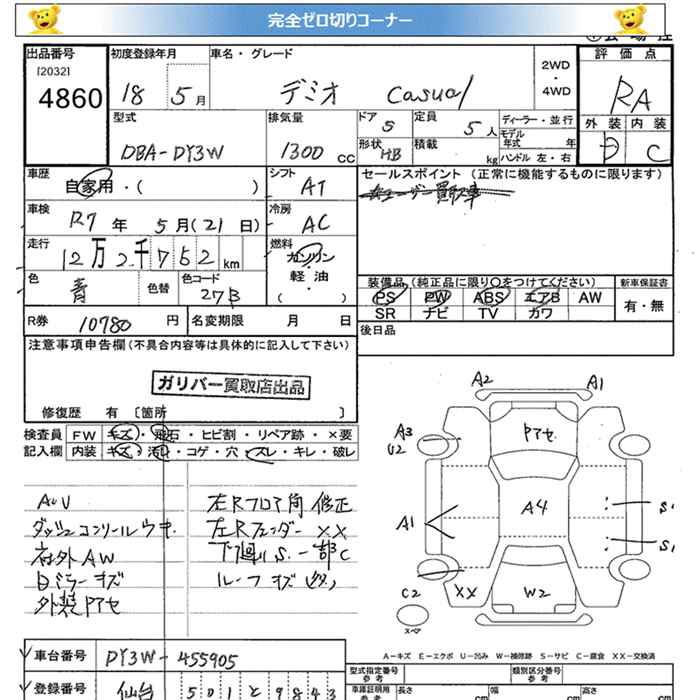 完全ゼロ切りコーナー
出品番号 初度登録年月 車名・グレード 評価点
[2032]
4860 18 5月 デミオ casual 2WD・4WD RA
外装 内装
型式 排気量 ドア 5 定員 5人 ディーラー・並行
C
DBA-DY3W 1300 cc 形状 HB 積載 kg モデル年式 年
ハンドル 左・右
車歴 自家用・( ) シフト AT セールスポイント (正常に機能するものに限ります)
車検 R7年 5月(21日) 冷房 AC
走行 12万2千752km 燃料 ガソリン・軽・油・( )
色 青 色替 色コード 27B
装備品 (純正品に限り〇をつけてください) 新車保証書
PS PW ABS エアB AW 有・無
SR ナビ TV カワ
R券 10780円 名変期限 月 日 後日品
注意事項申告欄(不具合内容等は具体的に記入して下さい)
ガリバー買取店出品
修復歴 有 [箇所 ]
検査員 FW キズ・飛石・ヒビ割・リペア跡・×要
記入欄 内装 キズ・汚れ・コゲ・穴・スレ・キレ・破レ
AUV 左Rフロア角 修正
ダッシュコンソールウキ 左Rフェンダー ××
社外AW 下廻りS.一部C
ルーフキズ
外装アセ
A2 A1
A3 アセ
U2
A1 A4 S1
S1
C2 ×× W2
スペア
A=キズ E=エクボ U=凹み W=補修跡 S=サビ C=腐食 XX=交換済
車台番号 DY3W-455905 型式指定番号 参考 類別区分番号 参考
登録番号 仙台 501と9843 車庫証明用 参考 長さ cm 幅 cm 高さ cm